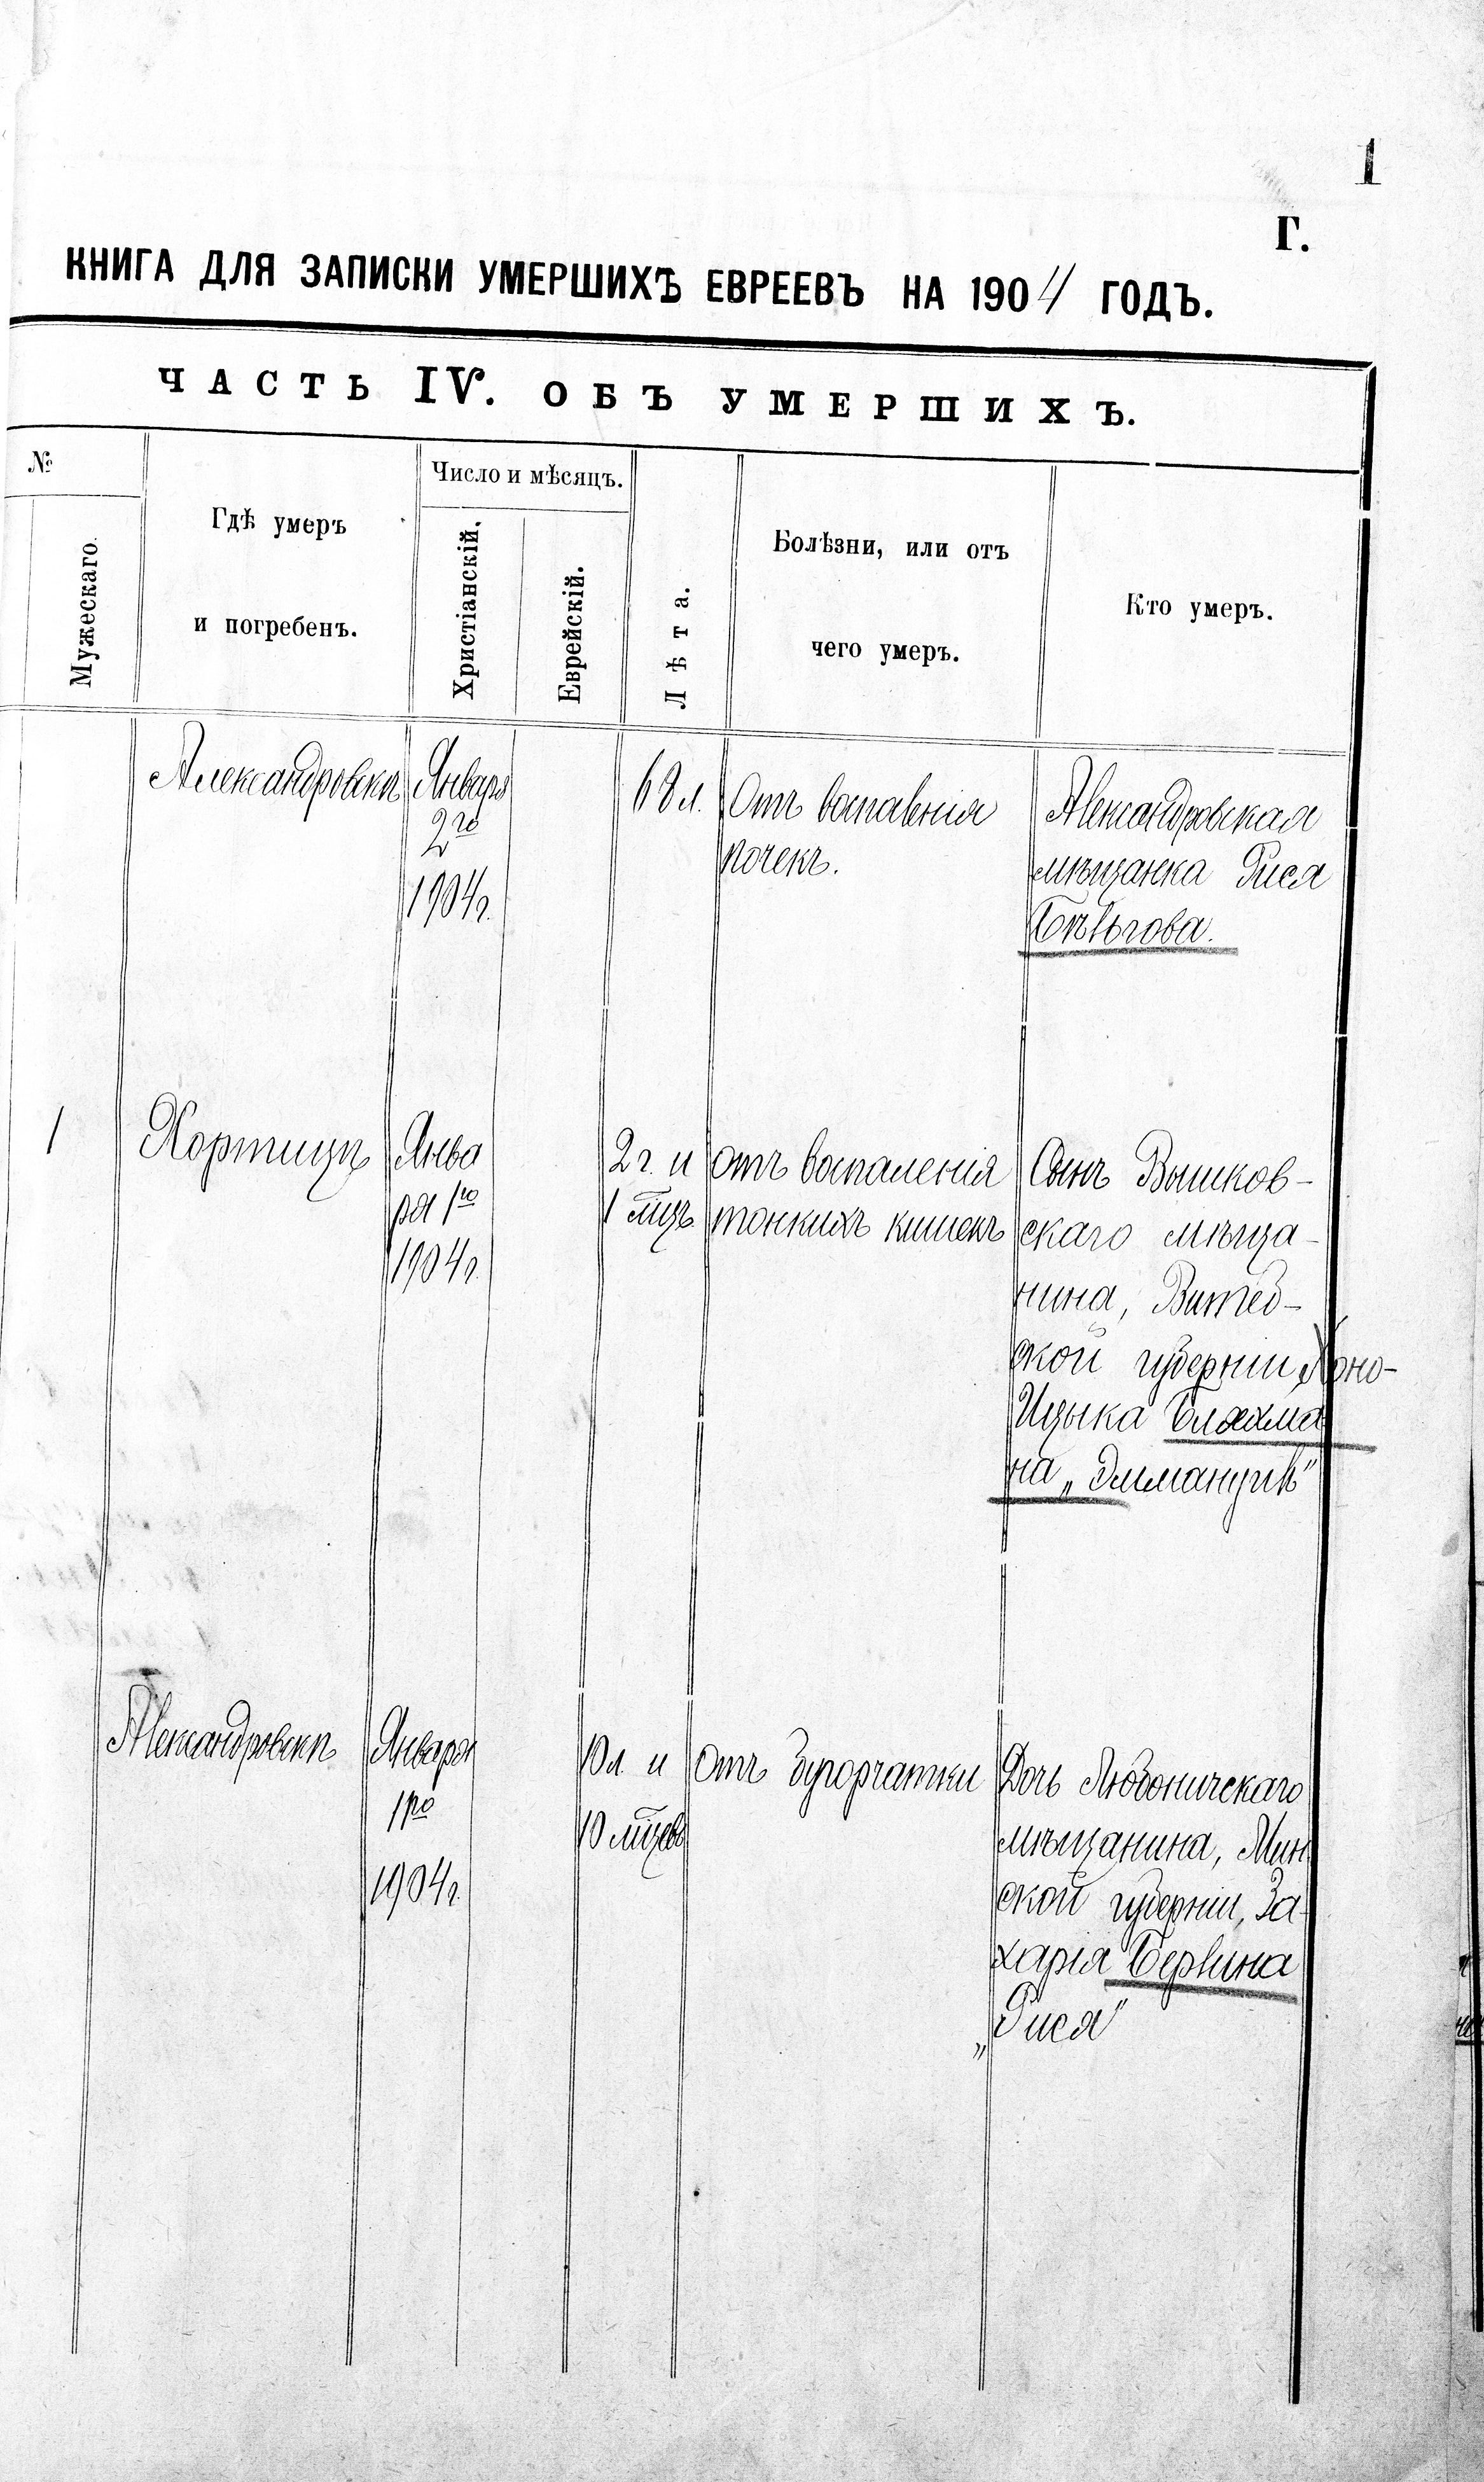 1
Г.
КНИГА ДЛЯ ЗАПИСКИ УМЕРШИХЪ ЕВРЕЕВЪ НА 1904 ГОДЪ.
ЧАСТЬ IV. ОБЪ УМЕРШИХЪ.
№
Мужескаго.
Гдѣ умеръ
и погребенъ.
Число и мѣсяцъ.
Христіанскій.
Еврейскій.
Лѣта.
Болѣзни, или отъ
чего умеръ.
Кто умеръ.
Александровскѣ
Января
2го
1904г.
68 л.
Отъ воспаленія
почекъ.
Александровская
мѣщанка Рися
1
Хортицѣ
Янва
ря 1го
1904г.
2 г. и
1 мцъ
отъ воспаленія
тонкихъ кишекъ
Сынъ Вышков-
скаго мѣща-
нина, Витеб-
ской губерніи, Хоно-
Ицыка Бляхма
на „Эммануилъ"
Александровскѣ
Января
1го
1904г.
10 л. и
10 мцевъ
Отъ бугорчатки
Дочь Любоничскаго
мѣщанина, Мин
ской губерніи, За-
харія Берлина
„Рися"